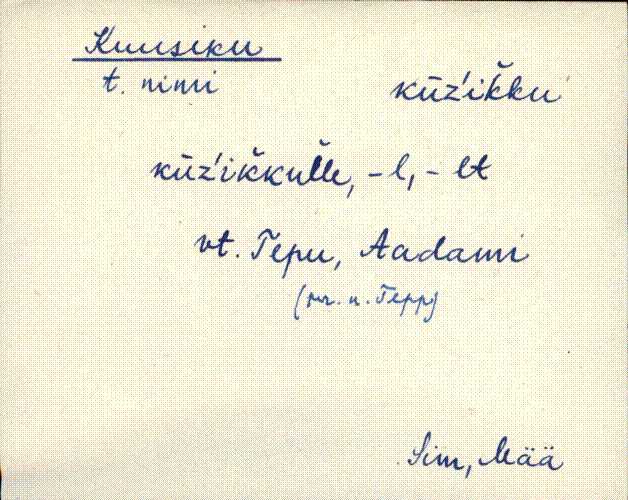 Kuusiku
t. nimi
kūz'ik̆ku
kūz'ik̆kul̆le, -l, -lt
vt. Tepu, Aadami
(pr. n. Tepp)
Sim, Mää